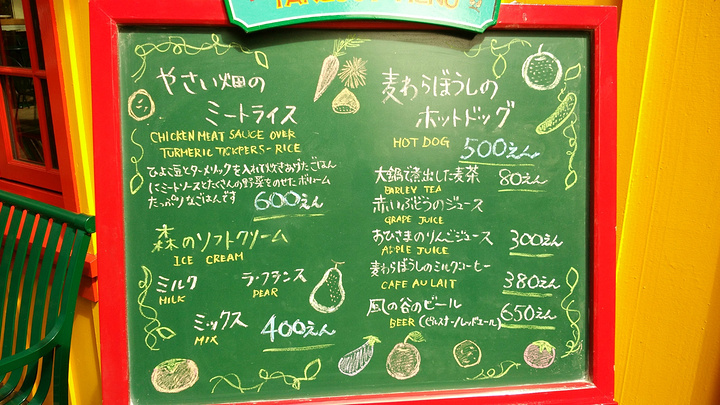 TAKEOUT MENU
やさい畑の
ミートライス
CHICKEN MEAT SAUCE OVER
TURMERIC TICKPERS-RICE
ひよこ豆とターメリックを入れて炊きあげたごはん
にミートソースとたくさんの野菜をのせたボリューム
たっぷりなごはんです
600えん
森のソフトクリーム
ICE CREAM
ミルク
MILK
ラ・フランス
PEAR
ミックス
MIX
400えん
麦わらぼうしの
ホットドッグ
HOT DOG
500えん
大鍋で煮出した麦茶 80えん
BARLEY TEA
赤いぶどうのジュース
GRAPE JUICE
おひさまのりんごジュース 300えん
APPLE JUICE
麦わらぼうしのミルクコーヒー
CAFE AU LAIT 380えん
風の谷のビール 650えん
BEER (ピルスナー/レッドエール)